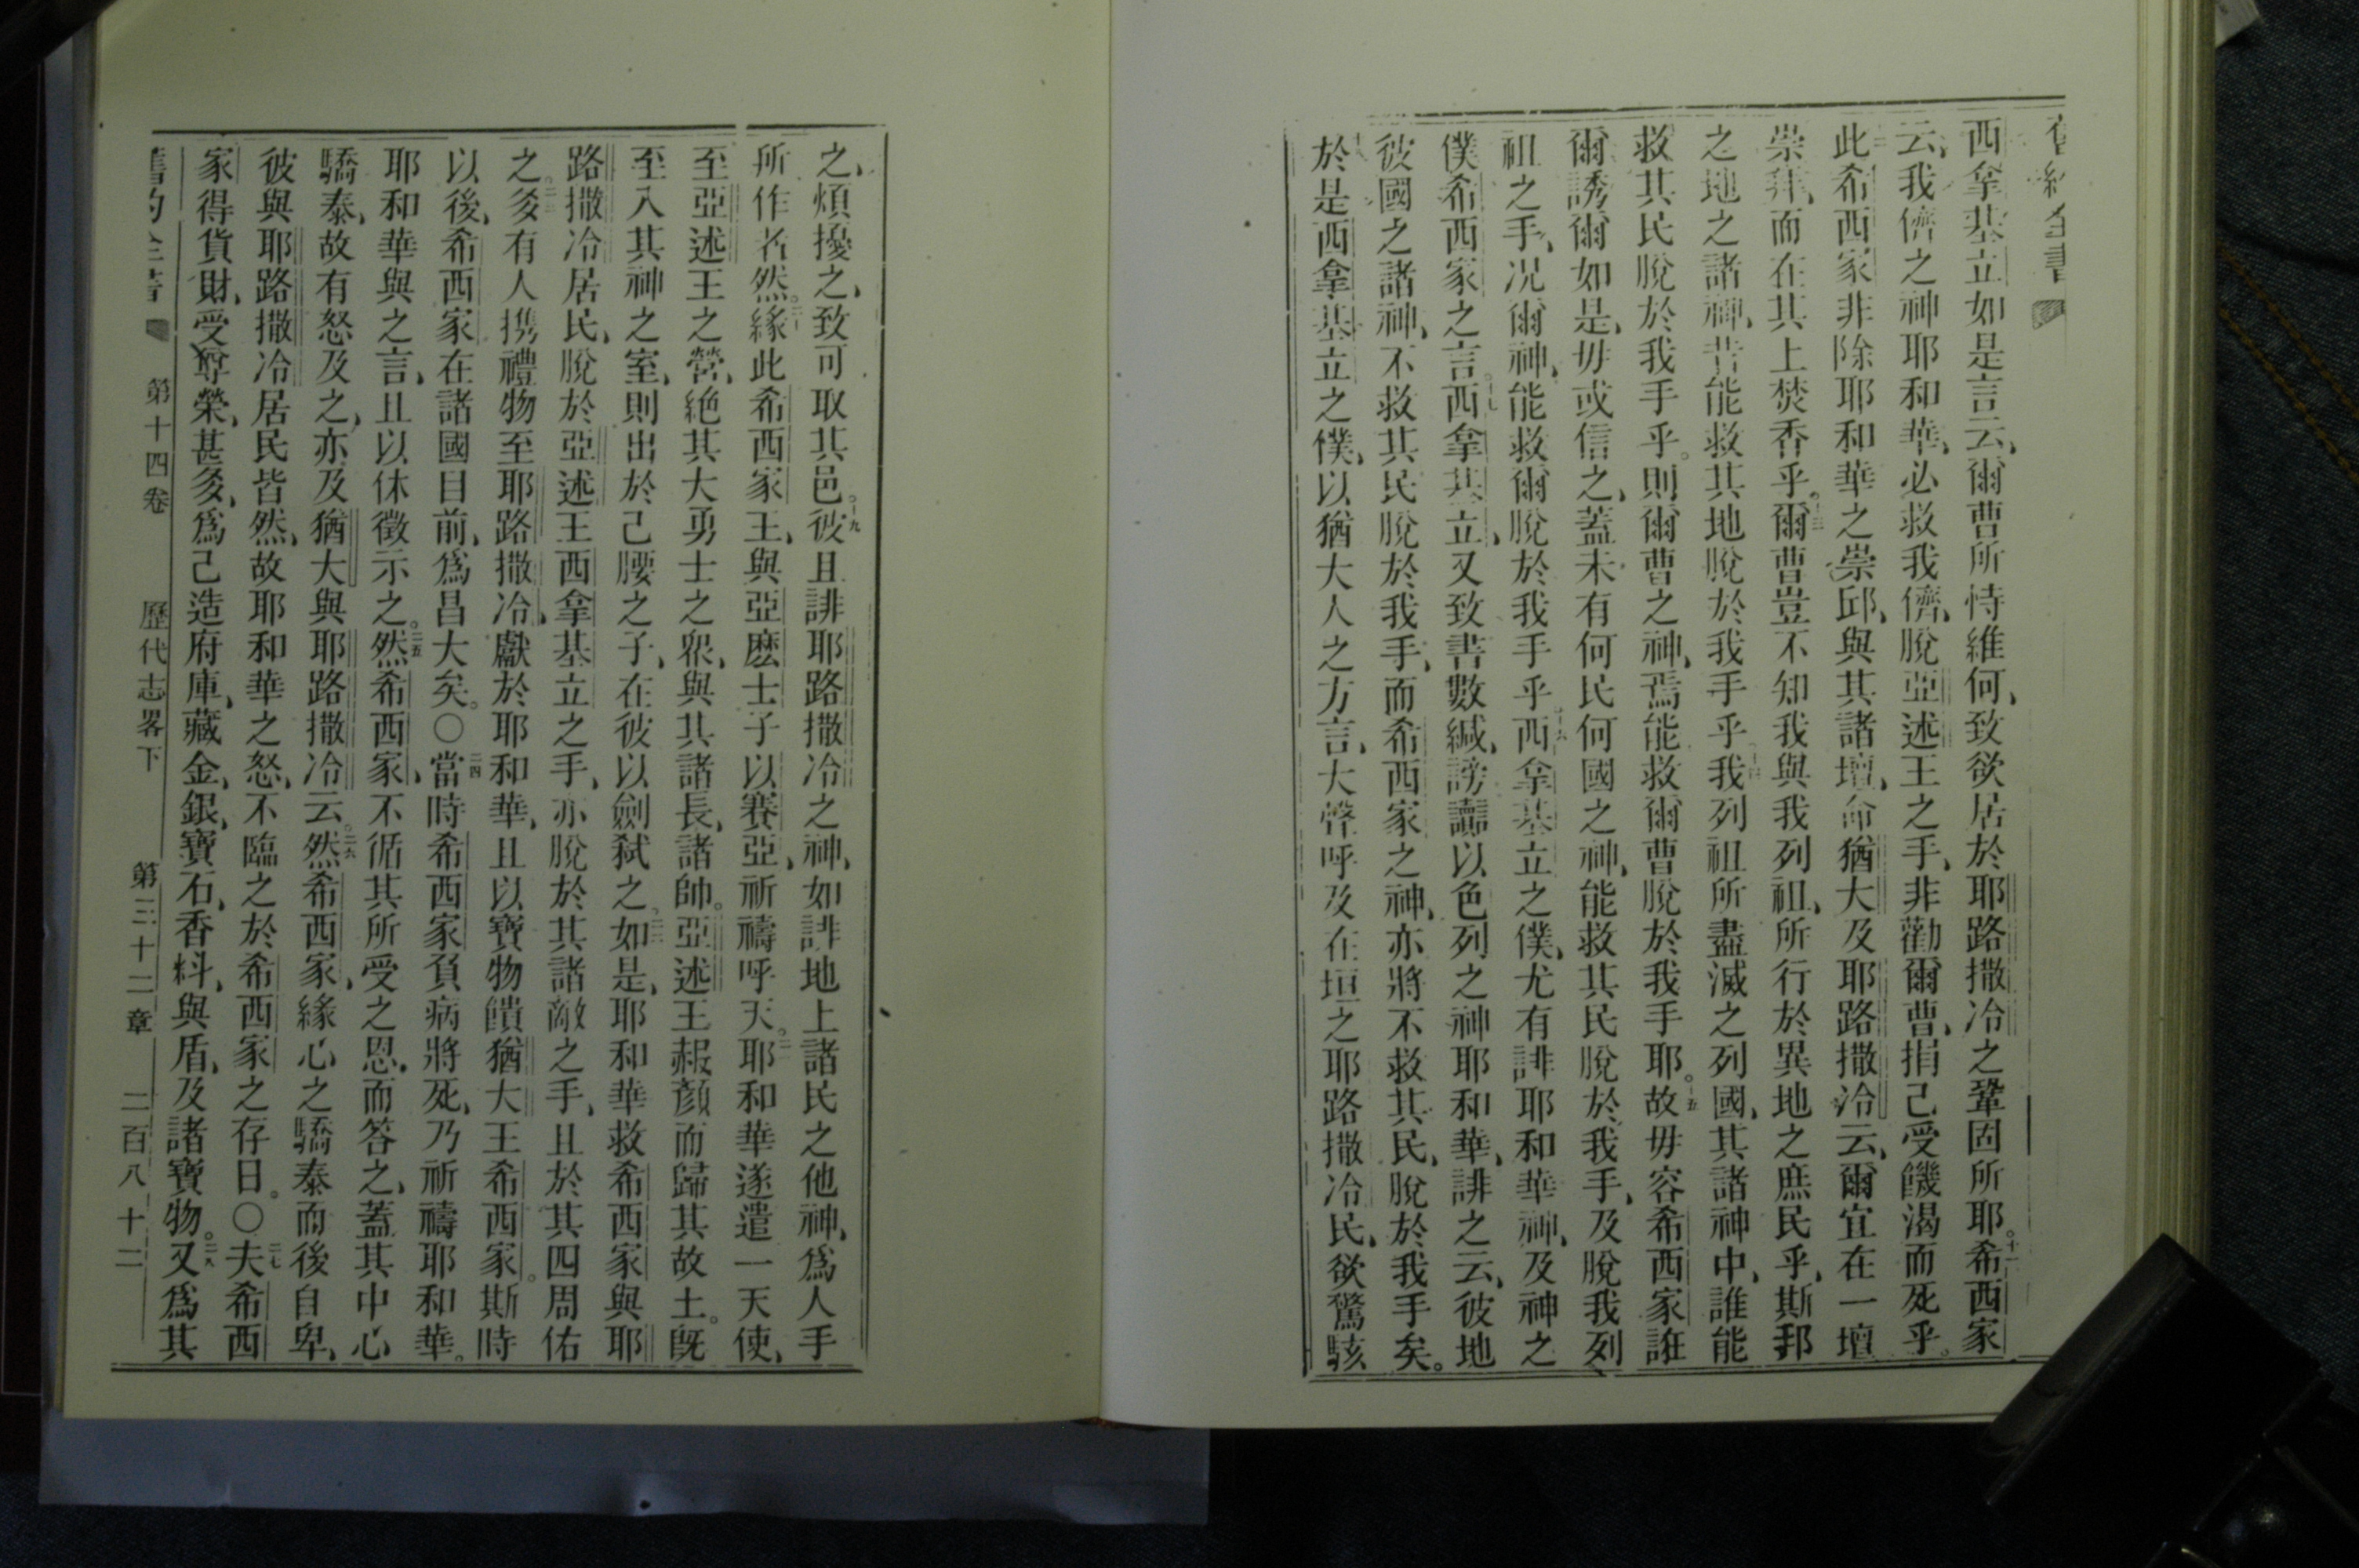 舊約全書
西拿基立如是言云、爾曹所恃維何、致欲居於耶路撒冷之鞏固所耶。十一希西家
云、我儕之神耶和華、必救我儕、脫亞述王之手、非勸爾曹、捐己受饑渴而死乎。
此希西家非除耶和華之崇邱、與其諸壇、命猶大及耶路撒冷云、爾宜在一壇
崇拜、而在其上焚香乎。十三爾曹豈不知我與我列祖、所行於異地之庶民乎、斯邦
之地之諸神、昔能救其地脫於我手乎。十四我列祖所盡滅之列國、其諸神中、誰能
救其民脫於我手乎。則爾曹之神、焉能救爾曹脫於我手耶。十五故毋容希西家誑
爾誘爾如是、毋或信之、蓋未有何民何國之神、能救其民脫於我手、及脫我列
祖之手、况爾神、能救爾脫於我手乎。十六西拿基立之僕、尤有誹耶和華神、及神之
僕希西家之言。十七西拿基立、又致書數緘、謗讟以色列之神耶和華、誹之云、彼地
彼國之諸神、不救其民脫於我手、而希西家之神、亦將不救其民、脫於我手矣。
十八於是西拿基立之僕、以猶大人之方言、大聲呼及在垣之耶路撒冷民、欲驚駭
之、煩擾之、致可取其邑。十九彼且誹耶路撒冷之神、如誹地上諸民之他神、爲人手
所作者然。二十緣此希西家王、與亞麽士子以賽亞、祈禱呼天。二一耶和華遂遣一天使、
至亞述王之營、絶其大勇士之衆、與其諸長、諸帥。亞述王赧顏而歸其故土。旣
至入其神之室、則出於己腰之子、在彼以劍弑之。二二如是、耶和華救希西家與耶
路撒冷居民、脫於亞述王西拿基立之手、亦脫於其諸敵之手、且於其四周佑
之。二三多有人携禮物至耶路撒冷、獻於耶和華、且以寶物饋猶大王希西家。斯時
以後、希西家在諸國目前、爲昌大矣。○二四當時希西家負病將死、乃祈禱耶和華。
耶和華與之言、且以休徵示之。二五然希西家、不循其所受之恩、而答之、蓋其中心
驕泰、故有怒及之、亦及猶大與耶路撒冷云。二六然希西家、緣心之驕泰而後自卑、
彼與耶路撒冷居民皆然、故耶和華之怒、不臨之於希西家之存日。○二七夫希西
家得貨財、受尊榮、甚多、爲己造府庫、藏金、銀、寶石、香料、與盾、及諸寶物。二八又爲其
舊約全書 第十四卷 歷代志畧下 第三十二章 二百八十二